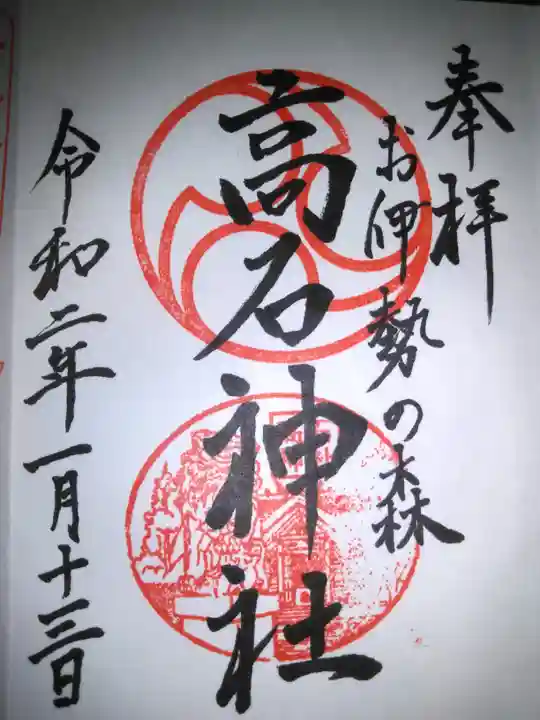 奉拝
お伊勢の森
高石神社
令和二年一月十三日